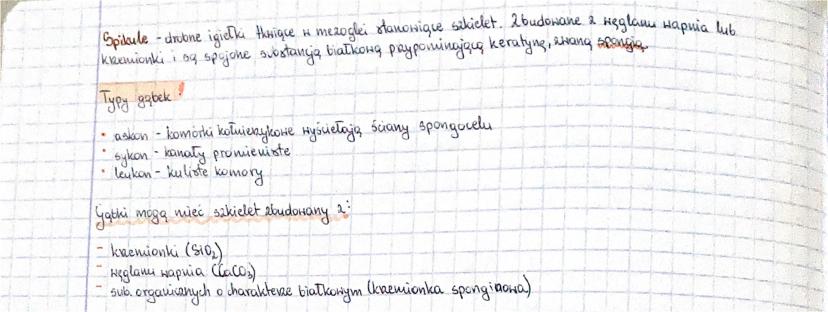 Spikule - drobne igiełki tkwiące w mezoglei stanowiące szkielet. Zbudowane z węglanu wapnia lub
krzemionki i są spojone substancją białkową przypominającą keratynę, zwaną spongią
Typy gąbek!
• askon - komórki kołnierzykowe wyściełają ściany spongocelu
• sykon - kanały promieniste
• leukon - kuliste komory
Gąbki mogą mieć szkielet zbudowany z:
- krzemionki (SiO₂)
- węglanu wapnia (CaCO₃)
- sub. organicznych o charakterze białkowym (krzemionka sponginowa)